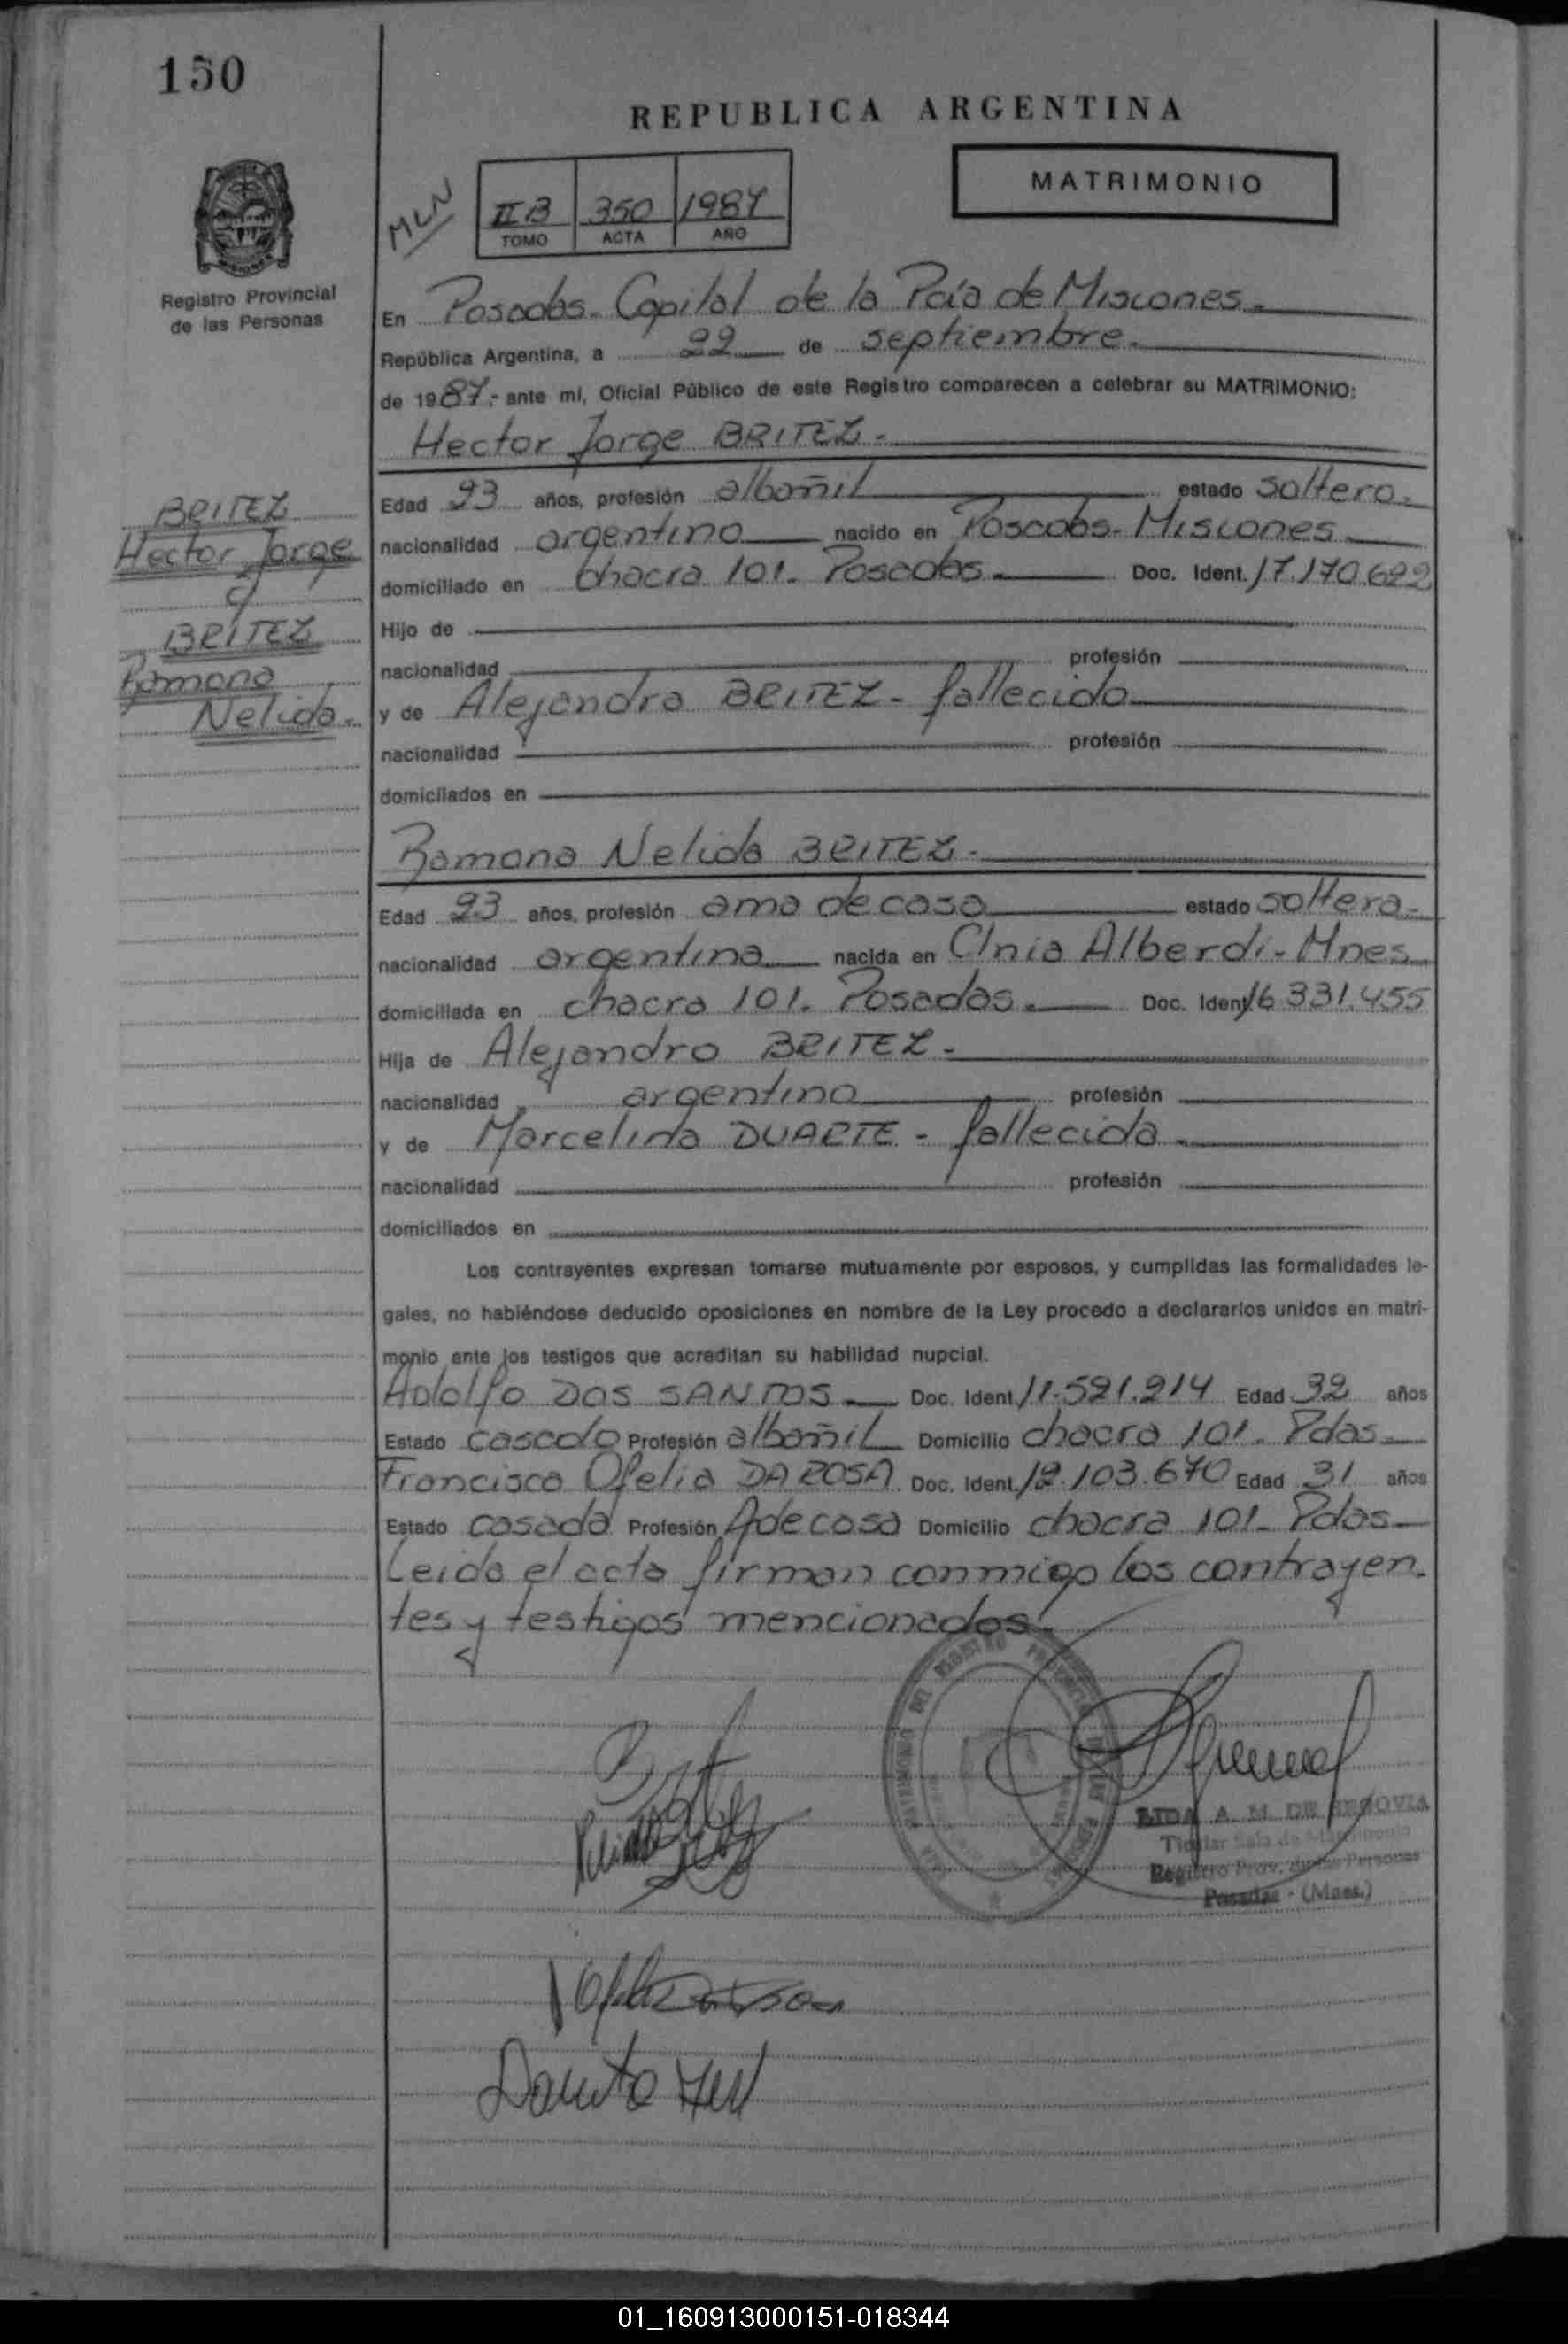 150
REPUBLICA ARGENTINA
MATRIMONIO
MLN
II B 350 1987
TOMO ACTA AÑO
Registro Provincial
de las Personas
En Posadas - Capital de la Pcia de Misiones.-
República Argentina, a 22 de septiembre.-
de 1987.- ante mí, Oficial Público de este Registro comparecen a celebrar su MATRIMONIO:
Hector Jorge BRITEZ.-
BRITEZ
Hector Jorge
y
BRITEZ
Ramona
Nelida.-
Edad 23 años, profesión albañil estado soltero.-
nacionalidad argentino nacido en Posadas - Misiones
domiciliado en chacra 101. Posadas.- Doc. Ident. 17.170.692
Hijo de
nacionalidad profesión
y de Alejandra BRITEZ - fallecida
nacionalidad profesión
domiciliados en
Ramona Nelida BRITEZ.-
Edad 23 años, profesión ama de casa estado soltera.-
nacionalidad argentina nacida en Clnia Alberdi - Mnes
domiciliada en chacra 101. Posadas.- Doc. Ident. 16.331.455
Hija de Alejandro BRITEZ.-
nacionalidad argentino profesión
y de Marcelina DUARTE - fallecida.-
nacionalidad profesión
domiciliados en
Los contrayentes expresan tomarse mutuamente por esposos, y cumplidas las formalidades le-
gales, no habiéndose deducido oposiciones en nombre de la Ley procedo a declararlos unidos en matri-
monio ante los testigos que acreditan su habilidad nupcial.
Adolfo DOS SANTOS.- Doc. Ident. 11.521.214 Edad 32 años
Estado casado Profesión albañil Domicilio chacra 101. Pdas.-
Francisca Ofelia DA ROSA Doc. Ident. 12.103.670 Edad 31 años
Estado casada Profesión A de casa Domicilio chacra 101. Pdas.-
Leida el acta firman conmigo los contrayen-
tes y testigos mencionados.-
LIDA A. M. DE SEGOVIA
Titular Sala de Matrimonio
Registro Prov. de las Personas
Posadas - (Mnes.)
01_160913000151-018344